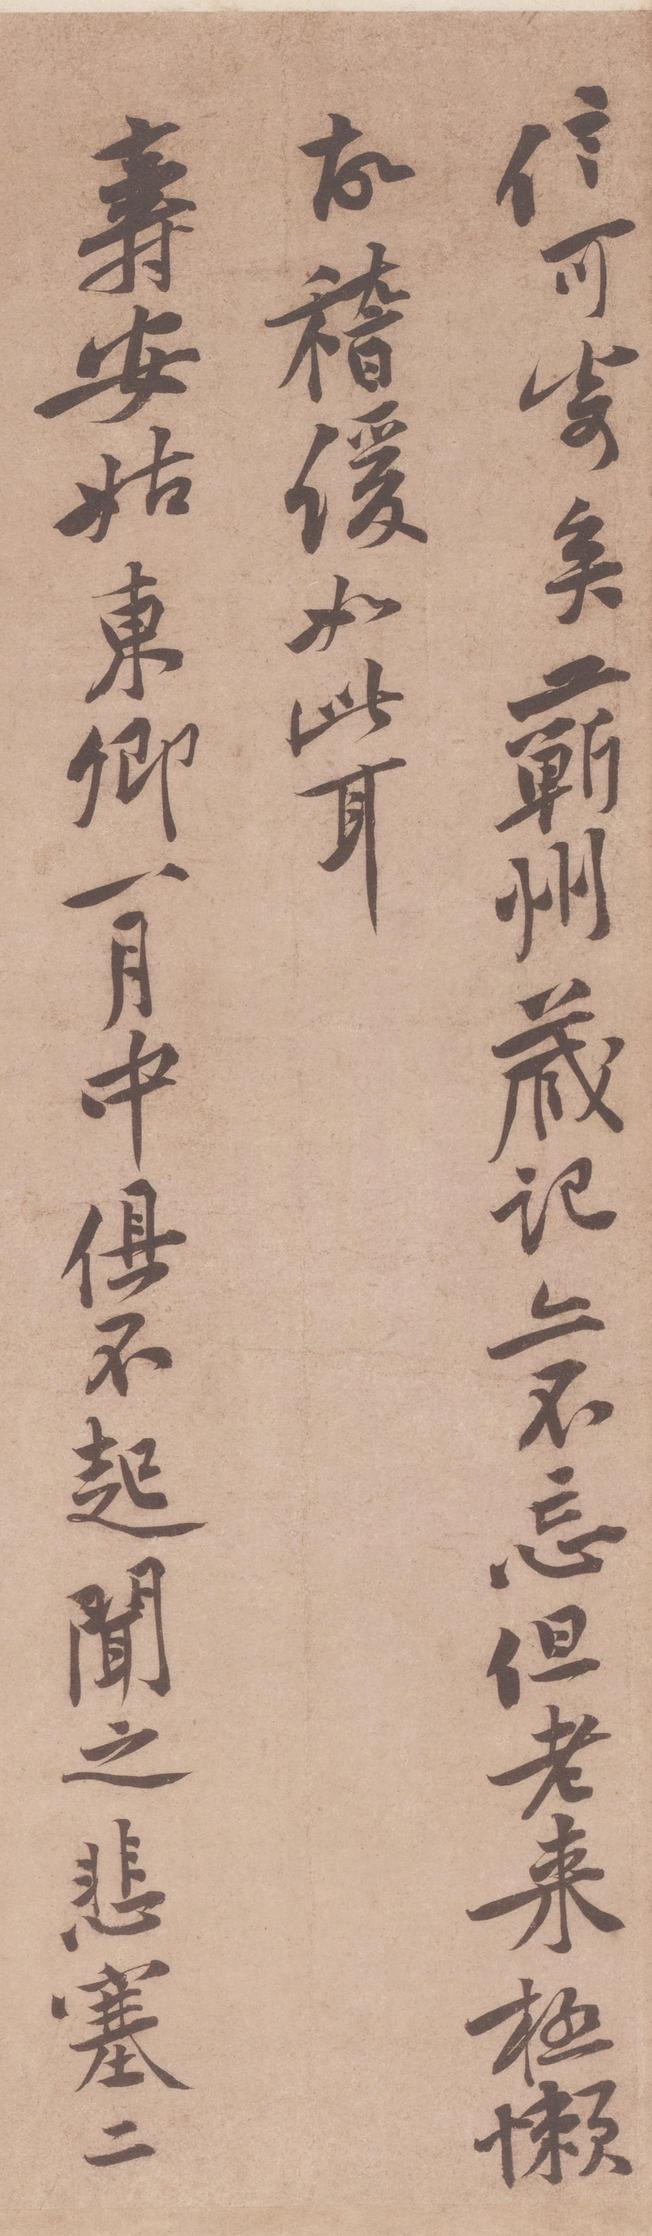 信可寄矣王蘄州藏記亦不忘但老来極懶
故稽緩如此耳
壽安姑東卿一月中俱不起聞之悲塞二